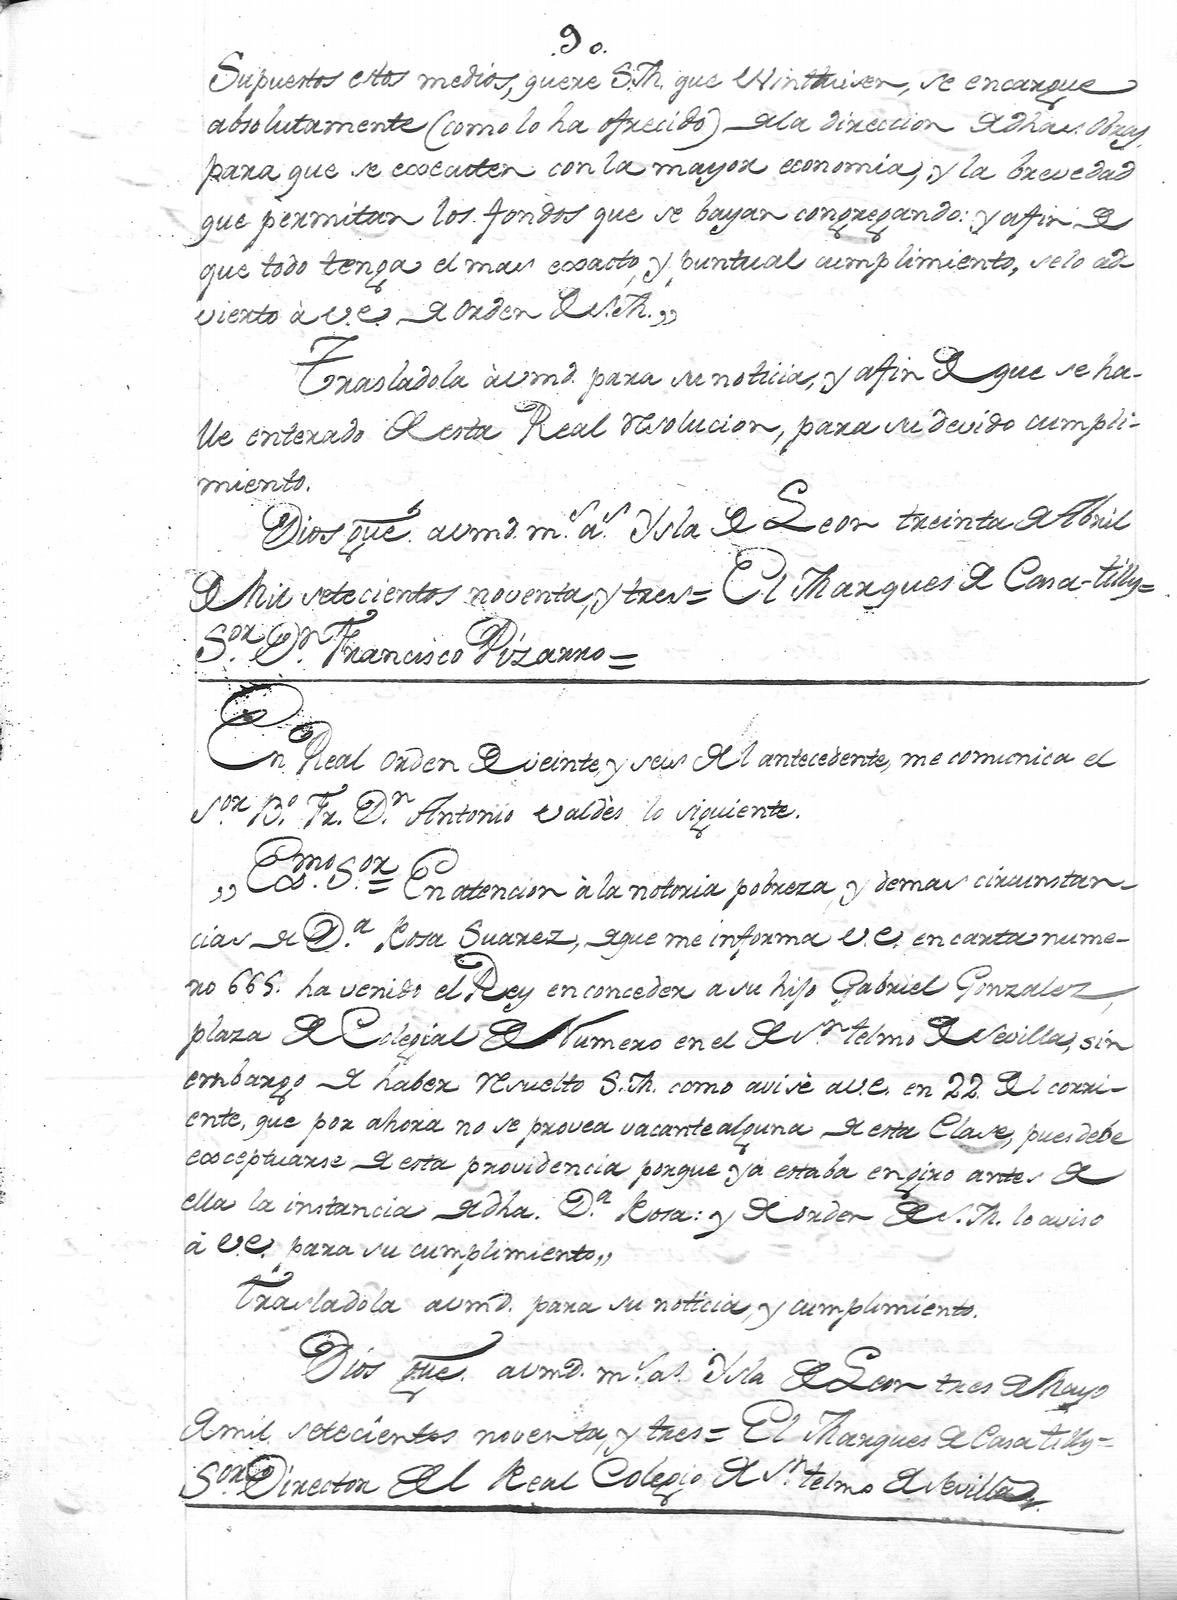 90.
Supuestos estos medios, quere S.M. que Winthuisen, se encargue
absolutamente (como lo ha ofrecido) de la direccion de dhas. Obras,
para que se executen con la mayor economia, y la brevedad
que permitan los fondos que se bayan congregando: y afin de
que todo tenga el mas exacto, y puntual cumplimiento, selo ad-
vierto à V.E. de orden de S.M.„
Trasladola à vmd. para su noticia, y afin de que se ha-
lle enterado de esta Real resolucion, para su devido cumpli-
miento.
Dios gue. a vmd. ms. as. Ysla de Leon treinta de Abril
de Mil setecientos noventa, y tres= El Marques de Casa-tilly=
Sor. Dn. Francisco Pizarro=
En Real orden de veinte, y seis del antecedente, me comunica el
Sor. Bo. Fr. Dn. Antonio Valdès lo siguiente.
„Exmo. Sor.= En atencion à la notoria pobreza, y demas circunstan-
cias de Da. Rosa Suarez, de que me informa V.E. en carta nume-
ro 665. ha venido el Rey en conceder a su hijo Gabriel Gonzalez,
plaza de Colegial de Numero en el de Sn. telmo de Sevilla, sin
embargo de haber resuelto S.M. como avisè a V.E. en 22. del corri-
ente, que por ahora no se provea vacante alguna de esta Clase, pues debe
exceptuarse de esta providencia porque ya estaba en giro antes de
ella la instancia de dha. Da. Rosa: y de orden de S.M. lo aviso
à V.E. para su cumplimiento„
Trasladola a vmd. para su noticia, y cumplimiento.
Dios gue. a vmd. ms. as. Ysla de Leon tres de Mayo
de mil setecientos noventa, y tres= El Marques de Casa tilly=
Sor. Director del Real Colegio de Sn. telmo de Sevilla.